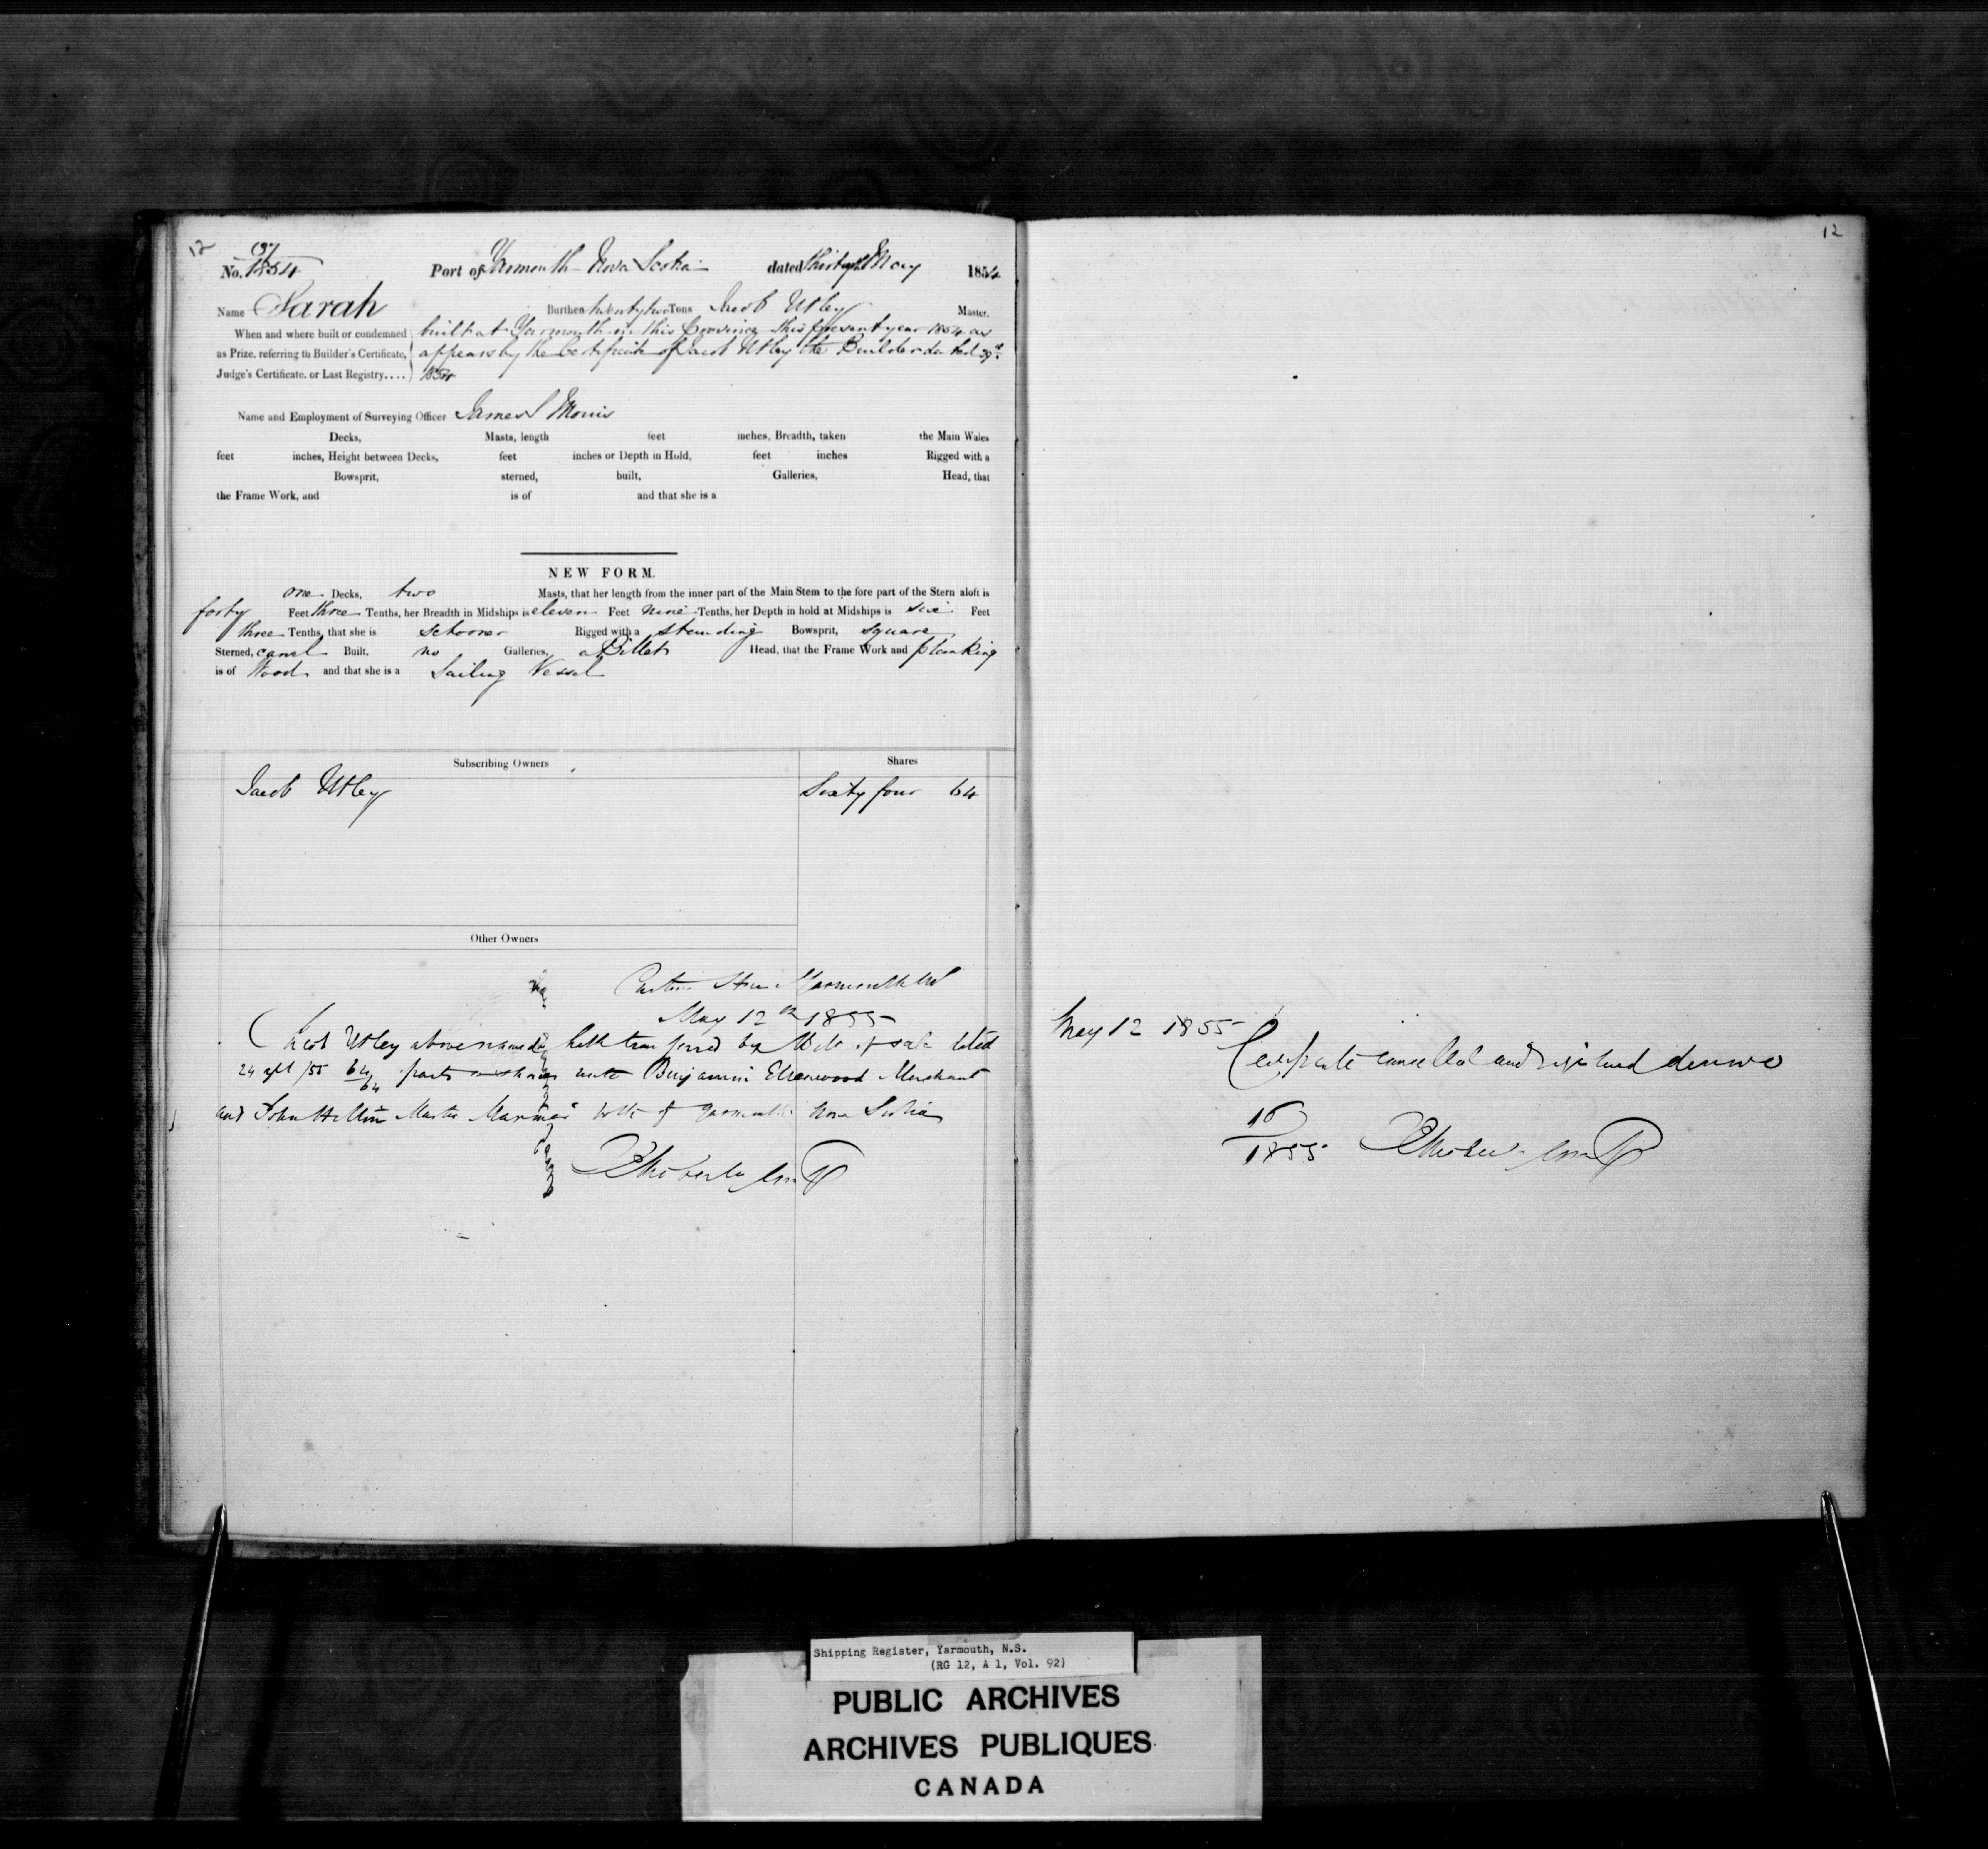 12
No. 1854 Port of Yarmouth Nova Scotia dated thirtyth May 1854
Name Sarah Burthen twenty two Tons Jacob Utley Master.
When and where built or condemned built at Yarmouth in this Province this present year 1854 as
as Prize, referring to Builder's Certificate, appears by the Certificate of Jacob Utley the Builder dated 29th
Judge's Certificate, or Last Registry.... 1854
Name and Employment of Surveying Officer James S Morris
Decks, Masts, length feet inches, Breadth, taken the Main Wales
feet inches, Height between Decks, feet inches or Depth in Hold, feet inches Rigged with a
Bowsprit, sterned, built, Galleries, Head, that
the Frame Work, and is of and that she is a
NEW FORM.
one Decks, two Masts, that her length from the inner part of the Main Stem to the fore part of the Stern aloft is
forty Feet three Tenths, her Breadth in Midships is eleven Feet nine Tenths, her Depth in hold at Midships is six Feet
three Tenths, that she is schooner Rigged with a standing Bowsprit, square
Sterned, carvel Built, no Galleries, a Billet Head, that the Frame Work and planking
is of Wood and that she is a Sailing Vessel
Subscribing Owners Shares
Jacob Utley Sixty four 64
Other Owners
Custom House Yarmouth NS
May 12th 1855
Jacob Utley above named hath transferred by Bill of sale dated
24 apl /55 64/64 parts or shares unto Benjamin Ellenwood Merchant
and John Hilton Master Mariner both of Yarmouth Nova Scotia
12
May 12 1855
Certificate cancelled and registered denovo
16
1855
Shipping Register, Yarmouth, N.S.
(RG 12, A 1, Vol. 92)
PUBLIC ARCHIVES
ARCHIVES PUBLIQUES
CANADA